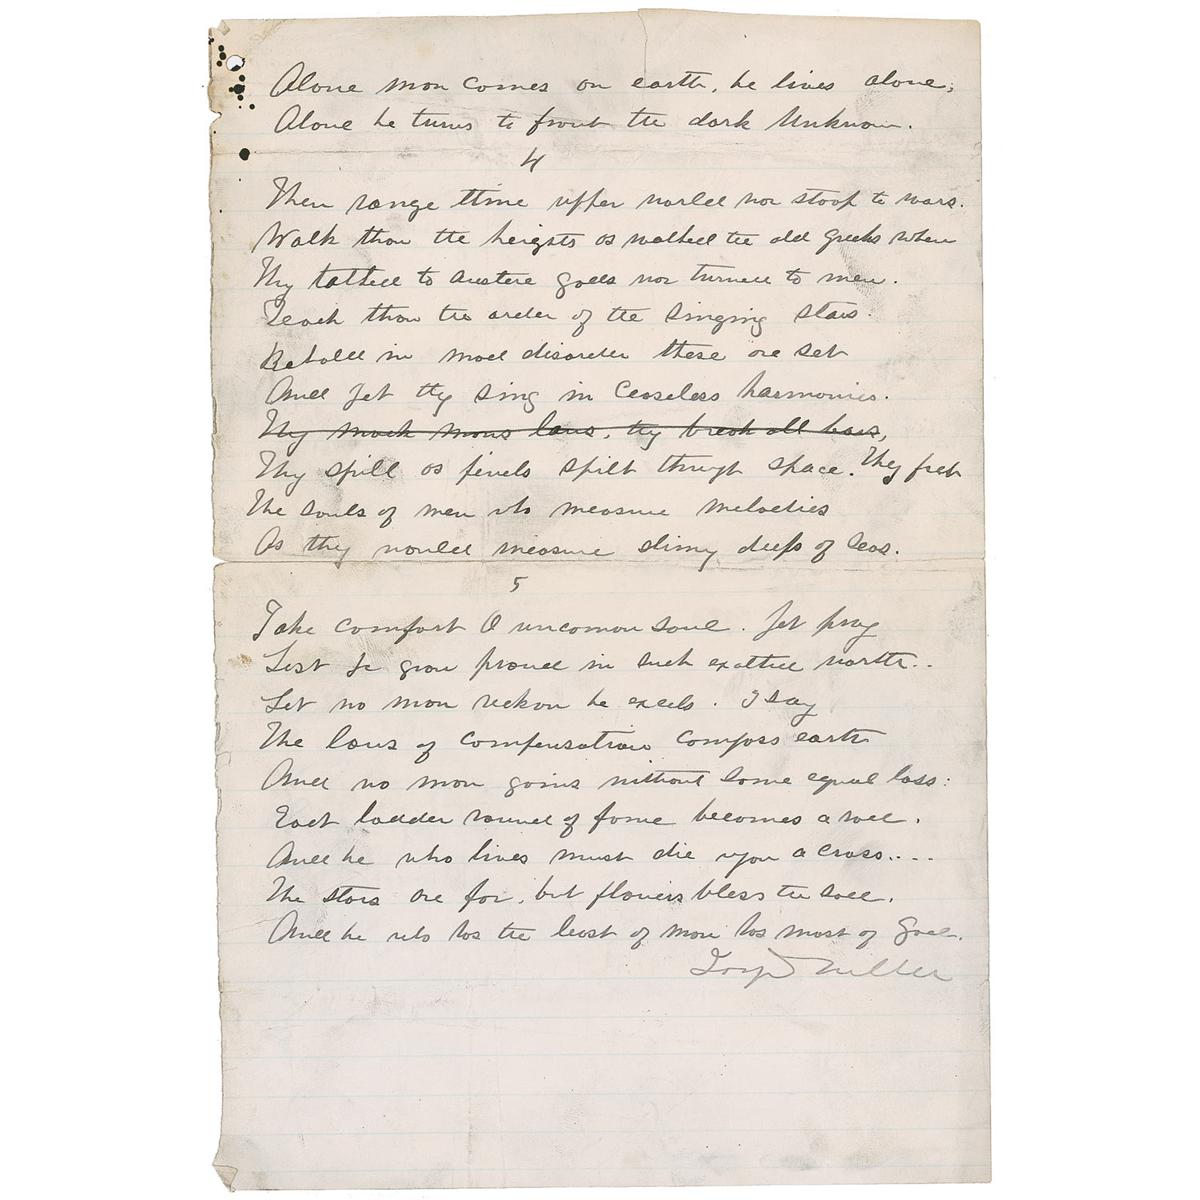 Alone man comes on earth, he lives alone;
Alone he turns to front the dark Unknown.
4
Then range thine upper world nor stoop to wars.
Walk thou the heights as walked the old Greeks when
They talked to austere gods nor turned to men.
Teach thou the order of the singing stars.
Behold in mad disorder these are set
And yet they sing in ceaseless harmonies.
They mock mens laws, they break all bars,
They spill as jewels spilt through space. They fret
The souls of men who measure melodies
As they would measure slimy deeps of seas.
5
Take comfort O uncomon soul. Yet pray
Lest ye grow proud in such exalted worth..
Let no man reckon he excels. I say
The laws of compensation compass earth
And no man gains without some equal loss:
Each ladder round of fame becomes a rod.
And he who lives must die upon a cross....
The stars are far, but flowers bless the sod.
And he who has the least of man has most of God.
Joaquin Miller